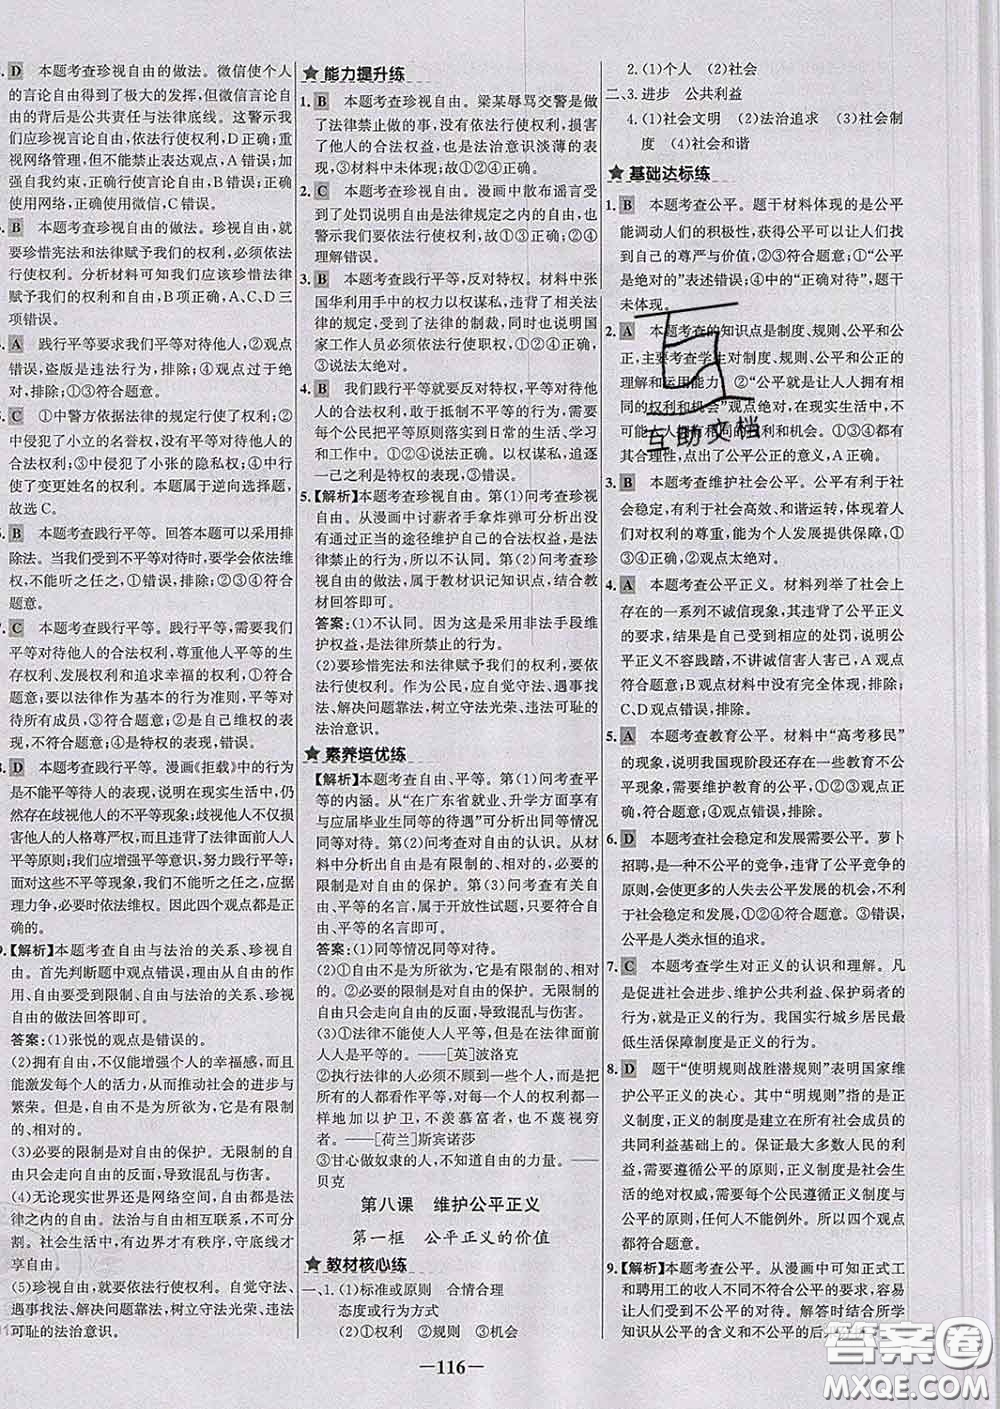 D 本题考查珍视自由的做法。微信使个人
的言论自由得到了极大的发挥,但微信言论自
由的背后是公共责任与法律底线。这警示我
们应珍视自由,依法行使权利,D正确;重
视网络管理,但不能禁止表达观点,A错误;
强自我约束,正确行使言论自由,B错误;正确
使用网络,正确使用微信,C错误。
B 本题考查珍视自由的做法。珍视自由,就
要珍惜宪法和法律赋予我们的权利,必须依法
行使权利。分析材料可知我们应该珍惜法律
赋予我们的权利和自由,B项正确,A、C、D三
项错误。
A 践行平等要求我们平等对待他人,②观点
错误,盗版是违法行为,排除;④观点过于绝
对,排除;①③符合题意。
C ①中警方依据法律的规定行使了权利;②
中侵犯了小立的名誉权,没有平等对待他人的
合法权利;③中侵犯了小张的隐私权;④中行
使了变更姓名的权利。本题属于逆向选择题,
故选C。
B 本题考查践行平等。回答本题可以采用排
除法。当我们受到不平等对待时,要学会依法维
权,不能听之任之,①错误,排除;②③④均符合
题意。
C 本题考查践行平等。践行平等,需要我们
平等对待他人的合法权利,尊重他人平等的
生存权利、发展权利和追求幸福的权利,①符
合题意;要以法律作为基本的行为准则,平等对
待所有成员,②③符合题意;②是自己维权的表
现,不符合题意;④是特权的表现,错误。
D 本题考查践行平等。漫画《拒载》中的行为
是不能平等待人的表现,说明在现实生活中,仍
然存在歧视他人的不平等现象;歧视他人不仅
损害他人的人格尊严权,而且违背了法律面前人人
平等原则;我们应增强平等意识,努力践行平等;
面对这些不平等现象,我们不能听之任之,应据
理力争,必要时依法维权。因此四个观点都是正
确的。
9.【解析】本题考查自由与法治的关系、珍视自
由。首先判断题中观点错误,理由从自由的作
用、自由受到限制、自由与法治的关系、珍视
自由的做法回答即可。
答案:(1)张悦的观点是错误的。
(2)拥有自由,不仅能增强个人的幸福感,而且
能激发每个人的活力,从而推动社会的进步与
繁荣。但是,自由不是为所欲为,它是有限制
的、相对的。
(3)必要的限制是对自由的保护。无限制的自
由只会走向自由的反面,导致混乱与伤害。
(4)无论现实世界还是网络空间,自由都是法
律之内的自由。法治与自由相互联系,不可
分割。社会生活中自由和秩序,守底线才有
自由。
(5)珍视自由,就要依法行使权利。自觉守法、
遇事找法、解决问题靠法,树立守法光荣、违法
可耻的法治意识。
★能力提升练
1. B 本题考查珍视自由。梁某辱骂交警是做
了法律禁止做的事,没有依法行使权利,损害
了他人的合法权益,也是法治意识淡薄的表
现,③材料中未体现;故①②④正确。
2. C 本题考查珍视自由。漫画中散布谣言受
到了处罚说明自由是法律规定之内的自由,也
警示我们要依法行使权利,①③正确;②④
理解错误。
3. B 本题考查践行平等,反对特权。材料中张
国华利用手中的权力以权谋私,违背了相关法
律的规定,受到了法律的制裁,同时也说明
国家工作人员必须依法行使职权,①②④正
确;③说法太绝对。
4. B 我们践行平等就要反对特权,平等对待他人
的合法权利,敢于抵制不平等的行为,需要我
们每个公民把平等原则落实到日常的生活、学习
和工作中。①②④正确。以权谋私,追逐
一己之利是特权的表现;③错误。
5.【解析】本题考查珍视自由。第(1)问考查珍视
自由。从漫画中讨薪者手拿炸弹可分析出没
有通过正当的途径维护自己的合法权益,是法
律禁止的行为,所以不认同。第(2)问考查珍
视自由的做法,属于教材识记知识点,结合教
材回答即可。
答案:(1)不认同。因为这是采用非法手段维
护权益,是法律所禁止的行为。
(2)要珍惜宪法和法律赋予我们的权利,要依
法行使权利。作为公民,应自觉守法、遇事找
法、解决问题靠法,树立守法光荣、违法可耻的
法治意识。
★素养培优练
【解析】本题考查自由、平等。第(1)问考查平
等的内涵。从“在广东省就业、升学方面享有
与应届毕业生同等的待遇”可分析出同等情况
同等对待。第(2)问考查对自由的认识。从材
料中分析出自由是有限制的、相对的,必要的
限制是对自由的保护。第(3)问考查有关自
由、平等的名言,属于开放性试题,符合题意
即可。
答案:(1)同等情况同等对待。
(2)①自由不是为所欲为,它是有限制的、相对
的。②必要的限制是对自由的保护。无限制的自
由只会走向自由的反面,导致混乱与伤害。
(3)①法律不能使人人平等,但是在法律面前
人人是平等的。——[英]波洛克
②执行法律的人必须不顾一切,像对待所有
的人那样,平等地对待每个人,每个人都一
样地加以护卫,不羡慕富者,也不蔑视穷
者。——[荷兰]斯宾诺莎
③甘心做奴隶的人,不知道自由的力量。——
贝克
第八课 维护公平正义
第一框 公平正义的价值
★教材核心练
一、1.(1)标准或原则 合情合理
态度或行为方式
(2)①权利 ②规则 ③机会
2.(1)个人 (2)社会
二、3.进步 公共利益
4.(1)社会文明 (2)法治追求 (3)社会制
度 (4)社会和谐
★基础达标练
1. B 本题考查公平。题干材料体现的是公平
能调动人们的积极性,获得公平可以让人们感受
到自己的尊严与价值,②③符合题意;①“公平
是绝对的”表述错误;④中的“正确对待”,题干
未体现。
2. A 本题考查的知识点是制度、规则、公平和公
正,主要考查学生对制度、规则、公平和公正的
理解和运用能力。②“公平就是让人人拥有相
同的权利和机会”观点绝对,在现实生活中,不
可能人人有相同的权利和机会。①③④均具
有合理性,点出了公平公正的意义,A正确。
3. B 本题考查维护社会公平。公平有利于社
会稳定,有利于社会高效、和谐运转,体现着人
们的尊重,能为个人发展提供保障,①
③④正确;②观点太绝对。
4. A 本题考查公平正义。材料列举了社会上
存在的一系列不诚信现象,其违背了公平正义
的要求,结果是自己受到相应的处罚,说明公平
正义不容践踏,不讲诚信害人害己,A观点
符合题意;B观点材料中没有完全体现,排除;
C、D观点错误,排除。
5. A 本题考查教育公平。材料中“高考移民”
的现象,说明我国现阶段还存在一些教育不公平
现象,需要维护教育的公平,①②③观点正
确,符合题意;④观点错误,排除。
6. D 本题考查社会稳定和发展需要公平。萝卜
招聘,是一种不公平的竞争,违背了公平竞争的
原则,会使更多的人失去公平发展的机会,不利
于社会稳定和发展,①②④符合题意;③错误,
公平是人类永恒的追求。
7. C 本题考查学生对正义的认识和理解。凡
是促进社会进步、维护公共利益、保护弱者的
行为,都是正义的行为。我国实行城乡居民最
低生活保障制度是正义的行为。
8. D 题干“使明规则战胜潜规则”表明国家维
护公平正义的决心。其中“明规则”指的是正
义制度,正义的制度是建立在所有社会成员的
共同利益基础上的。保证最大多数人民的利
益,需要遵循公平的原则,正义制度是社会生活
的绝对权威,需要每个公民遵循正义制度
的存在,任何人不能例外。所以,四个观点
都符合题意。
9.【解析】本题考查公平。从漫画中可知正式工和
和聘用工的收入是不一样的,很容易造成贫富差距,
让人们受到不公平的对待。解答时结合所学
知识从公平的含义和不公平的后
—116—
互助文档
答案圈
MXQE.COM